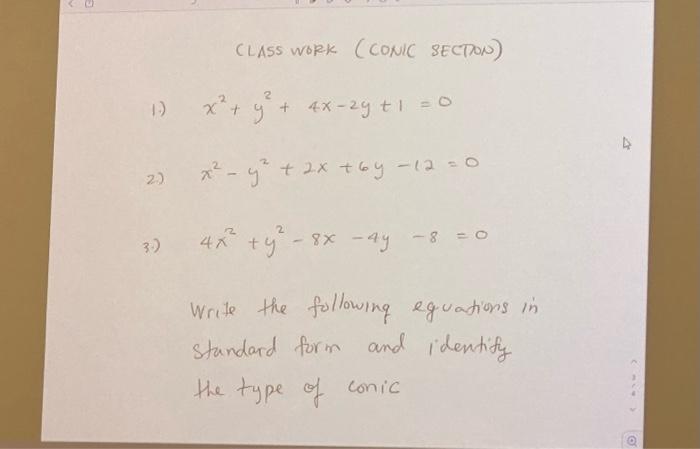 CLASS WORK (CONIC SECTION)
1.) x² + y² + 4x - 2y + 1 = 0
2.) x² - y² + 2x + 6y - 12 = 0
3.) 4x² + y² - 8x - 4y - 8 = 0
Write the following equations in
standard form and identify
the type of conic